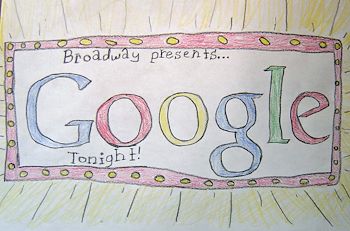 Broadway presents...
Google
Tonight!